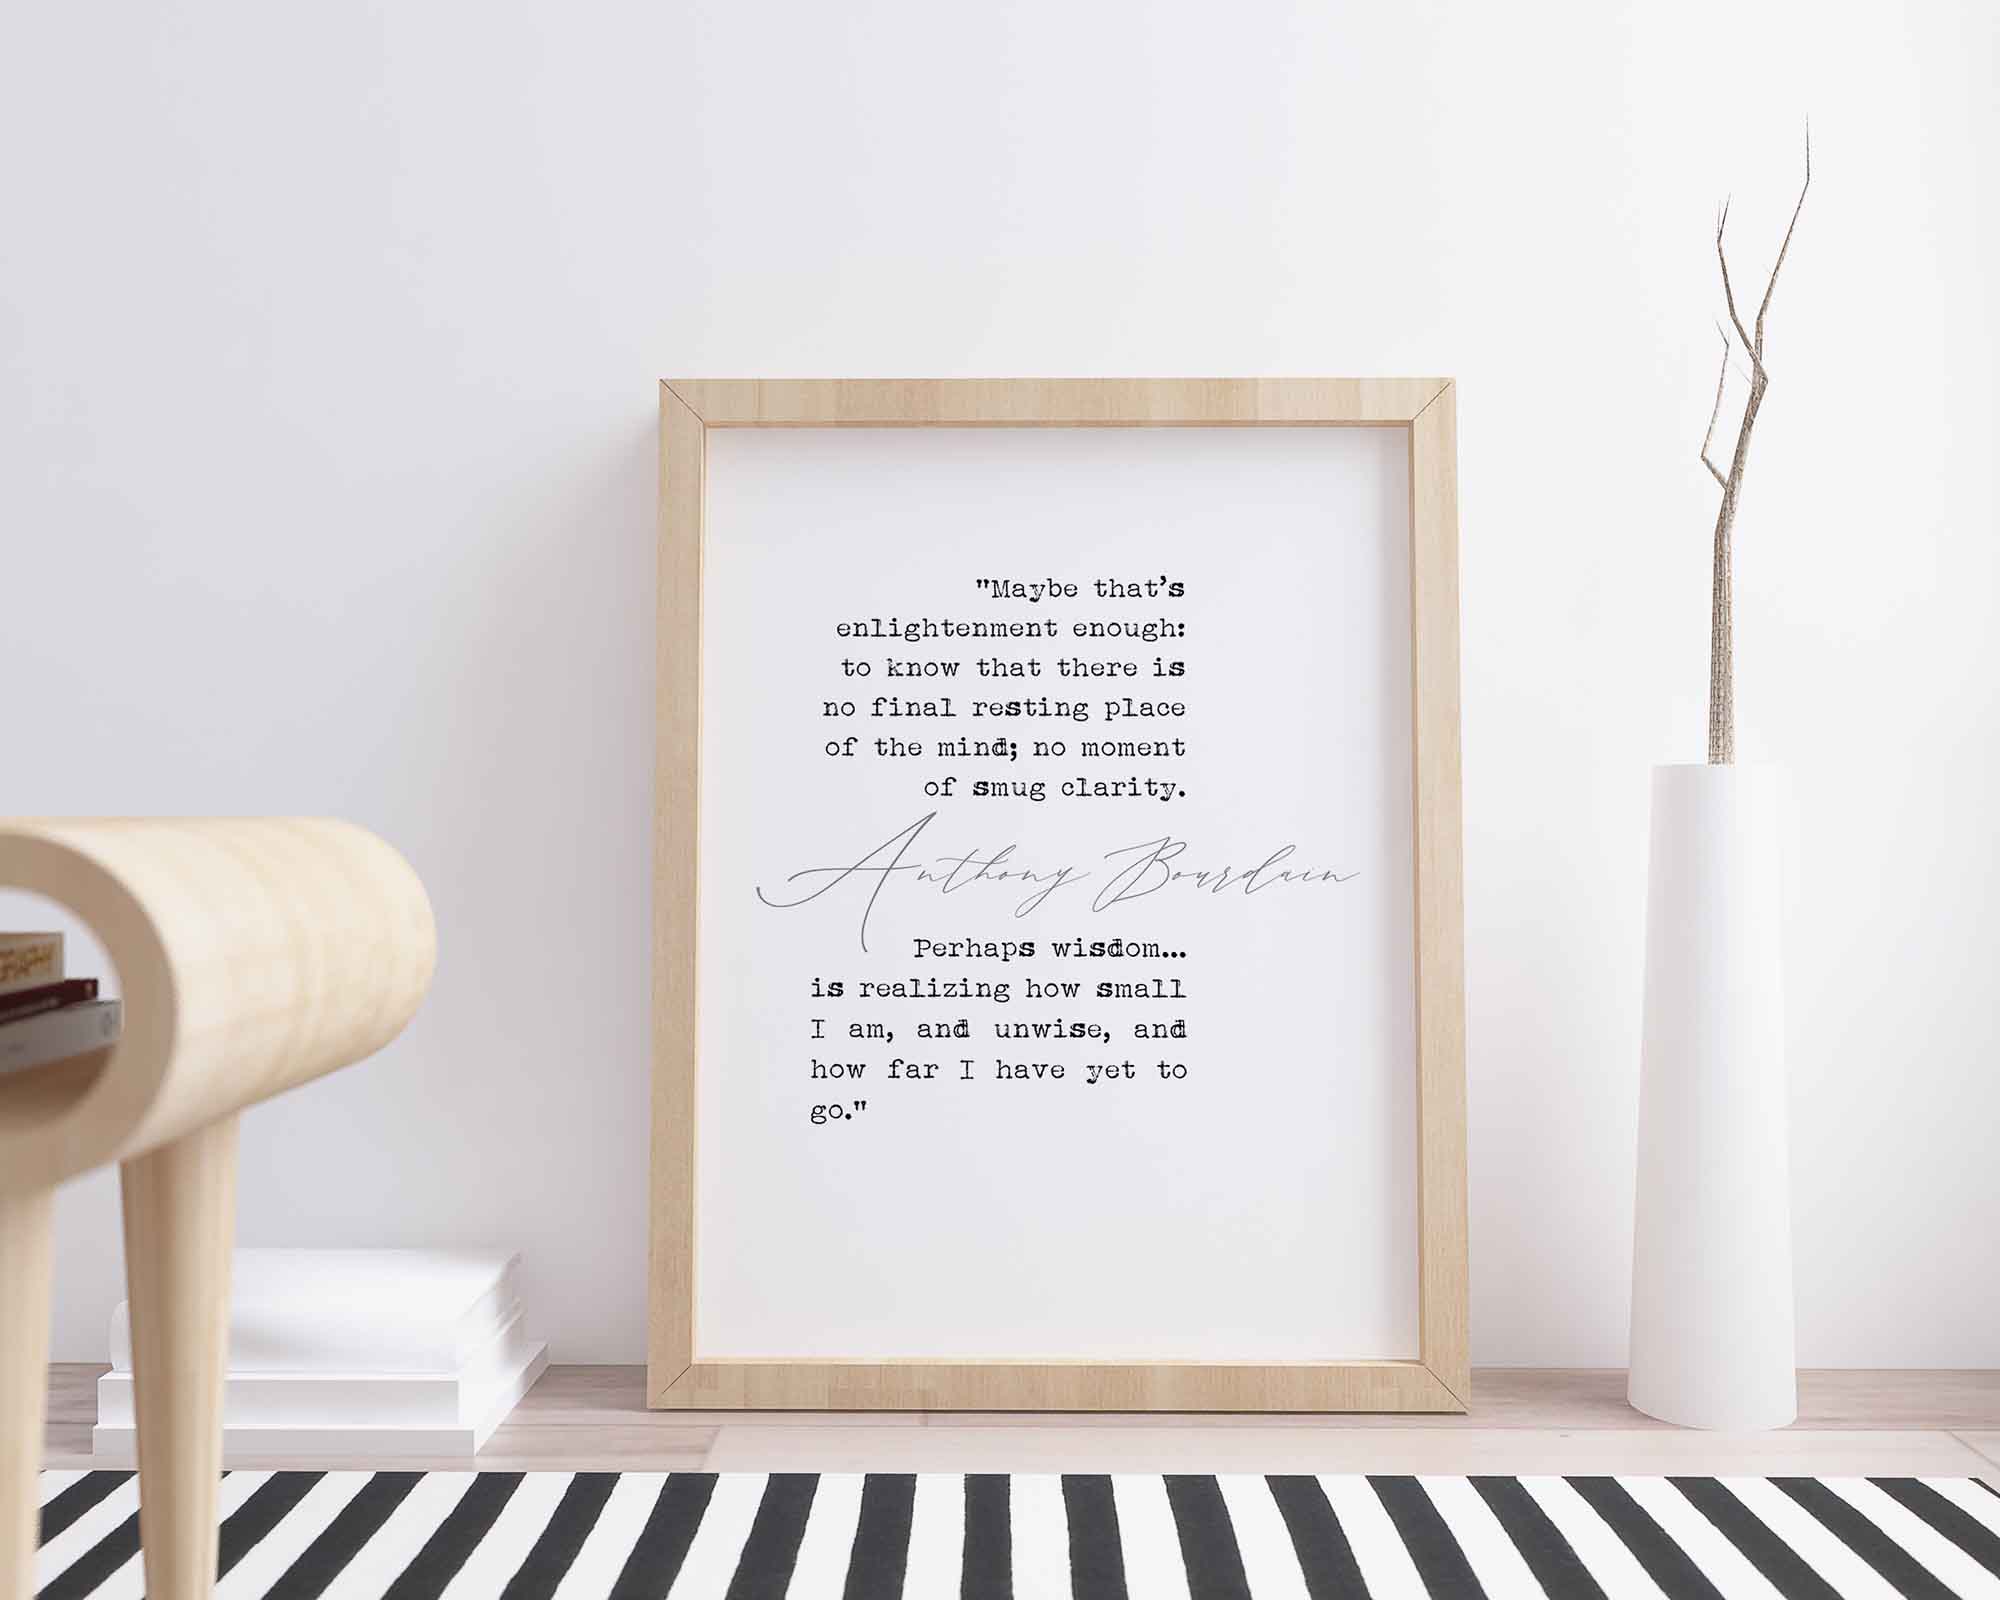 "Maybe that's
enlightenment enough:
to know that there is
no final resting place
of the mind; no moment
of smug clarity.
Anthony Bourdain
Perhaps wisdom...
is realizing how small
I am, and unwise, and
how far I have yet to
go."